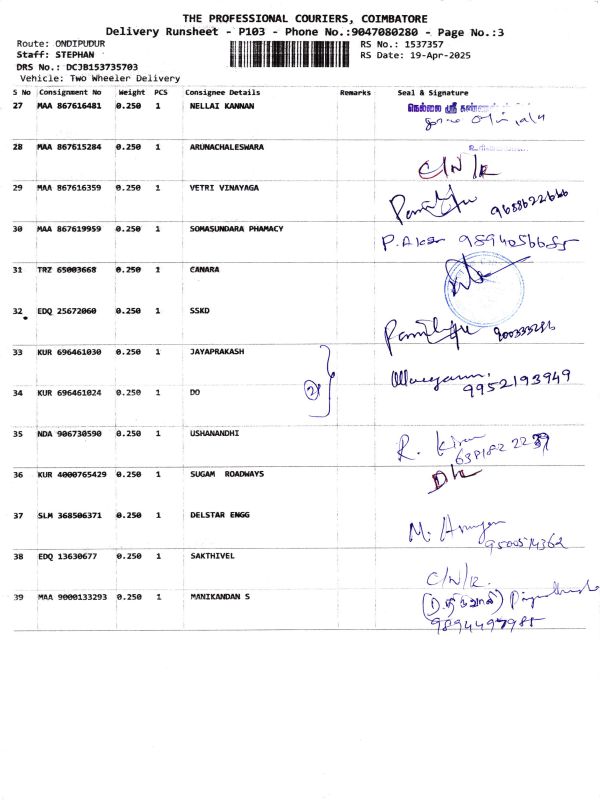 THE PROFESSIONAL COURIERS, COIMBATORE
Delivery Runsheet - P103 - Phone No.:9047080280 - Page No.:3
Route: ONDIPUDUR RS No.: 1537357
Staff: STEPHAN RS Date: 19-Apr-2025
DRS No.: DCJB153735703
Vehicle: Two Wheeler Delivery
S No Consignment No Weight PCS Consignee Details Remarks Seal & Signature
27 MAA 867616481 0.250 1 NELLAI KANNAN நெல்லை ஸ்ரீ
28 MAA 867615284 0.250 1 ARUNACHALESWARA C/N/R
29 MAA 867616359 0.250 1 VETRI VINAYAGA 9688622666
30 MAA 867619959 0.250 1 SOMASUNDARA PHAMACY P.
31 TRZ 65003668 0.250 1 CANARA
32 EDQ 25672060 0.250 1 SSKD
33 KUR 696461030 0.250 1 JAYAPRAKASH
34 KUR 696461024 0.250 1 DO 2 9952193949
35 NDA 906730590 0.250 1 USHANANDHI R. Kiran
36 KUR 4000765429 0.250 1 SUGAM ROADWAYS
37 SLM 368506371 0.250 1 DELSTAR ENGG M.
9500514362
38 EDQ 13630677 0.250 1 SAKTHIVEL C/N/R.
39 MAA 9000133293 0.250 1 MANIKANDAN S
9894497985